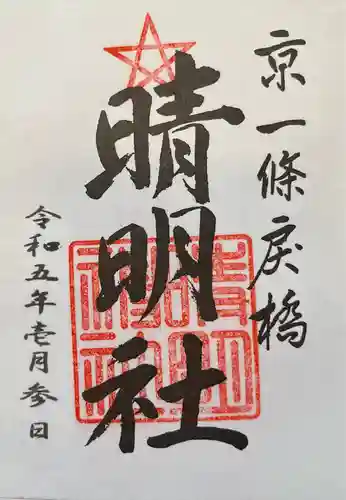 京一條戻橋
晴明社
令和五年壱月参日
晴明神社